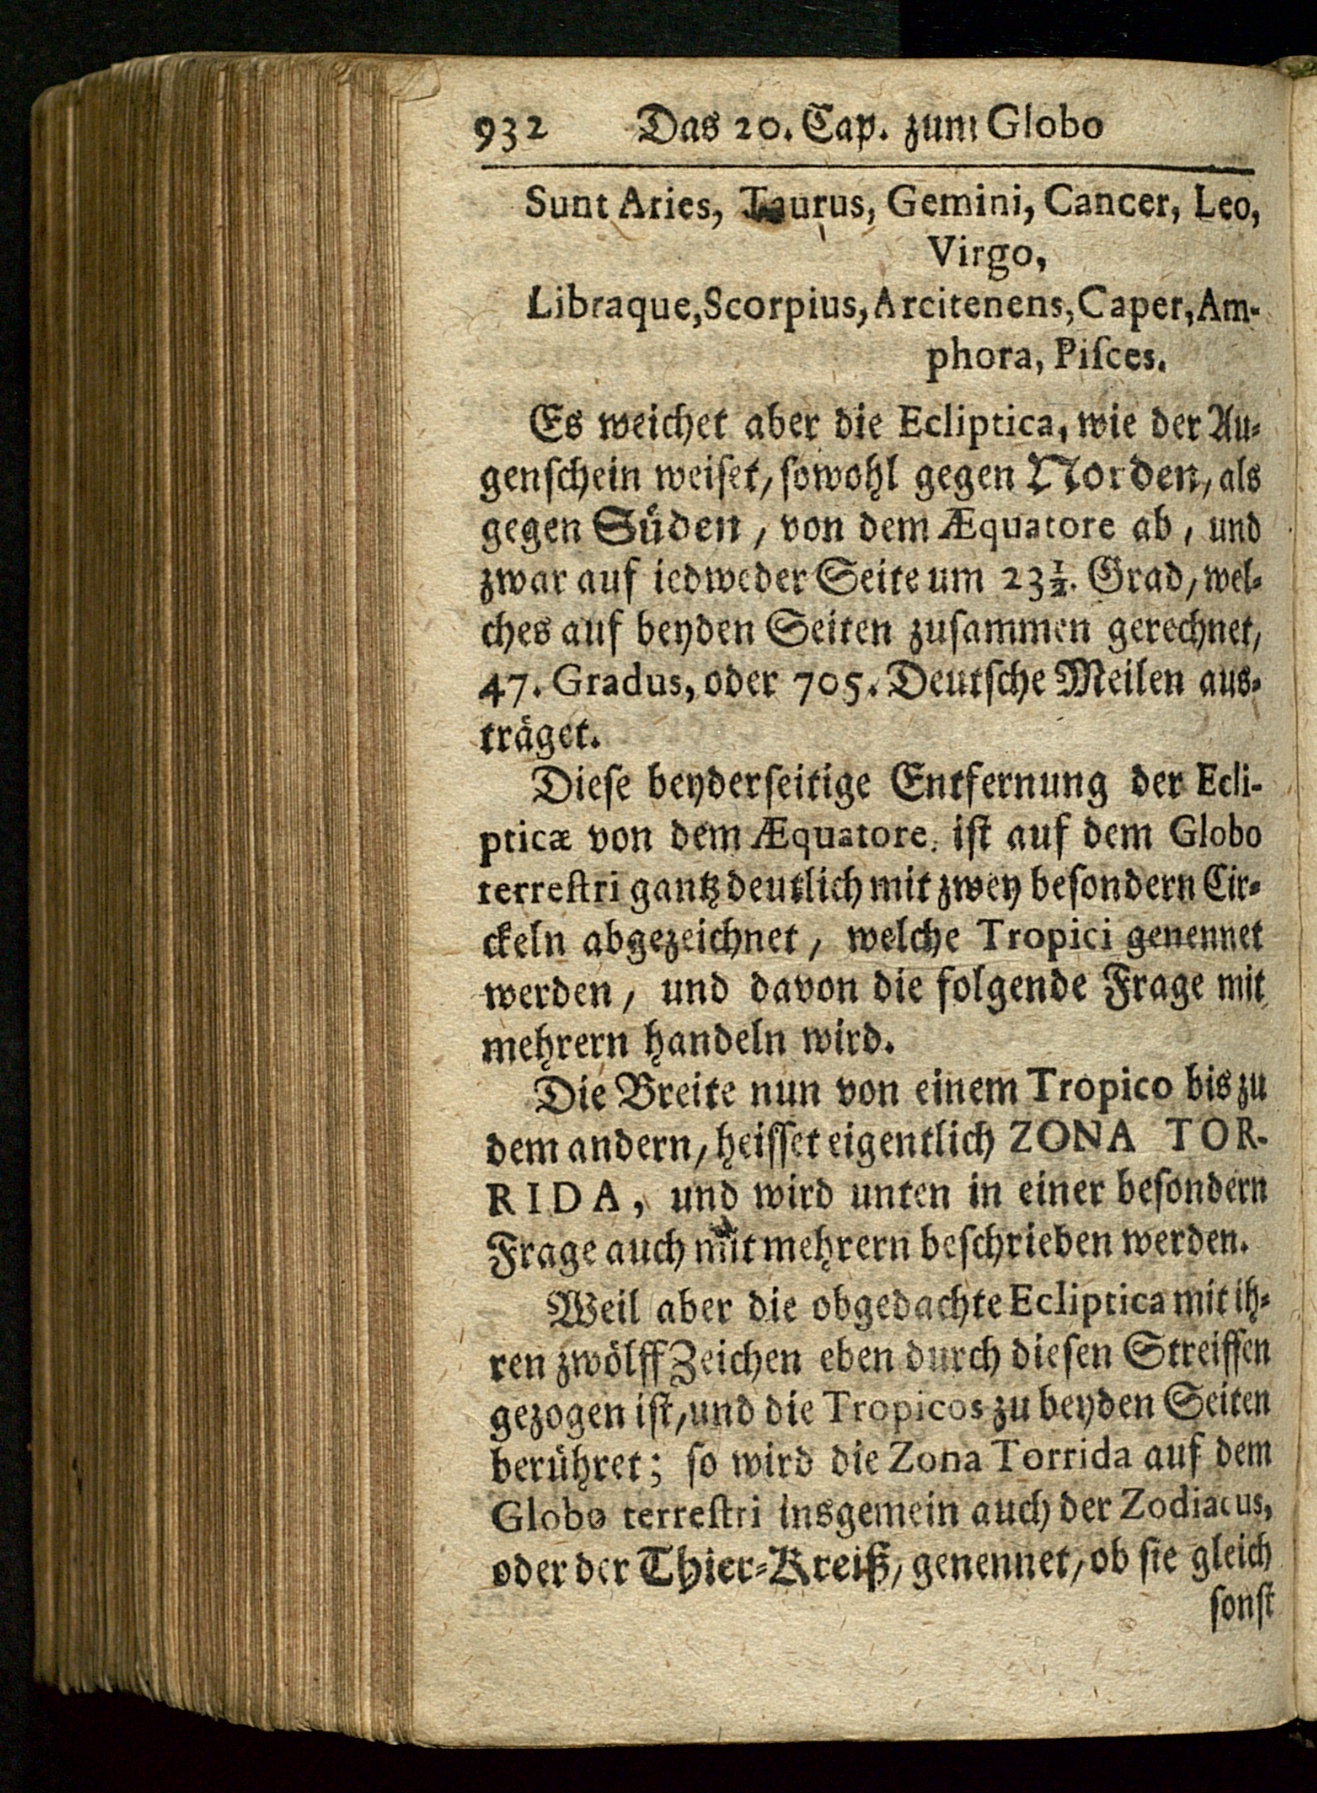 932 Das 20. Cap. zum Globo
Sunt Aries, Taurus, Gemini, Cancer, Leo,
Virgo,
Libraque, Scorpius, Arcitenens, Caper, Am-
phora, Piſces.
Es weichet aber die Ecliptica, wie der Au-
genſchein weiſet, ſowohl gegen Norden, als
gegen Süden, von dem Æquatore ab, und
zwar auf iedweder Seite um 23½. Grad, wel-
ches auf beyden Seiten zuſammen gerechnet,
47. Gradus, oder 705. Deutſche Meilen aus-
träget.
Dieſe beyderſeitige Entfernung der Ecli-
pticæ von dem Æquatore, iſt auf dem Globo
terreſtri gantz deutlich mit zwey beſondern Cir-
ckeln abgezeichnet, welche Tropici genennet
werden, und davon die folgende Frage mit
mehrern handeln wird.
Die Breite nun von einem Tropico bis zu
dem andern, heiſſet eigentlich ZONA TOR-
RIDA, und wird unten in einer beſondern
Frage auch mit mehrern beſchrieben werden.
Weil aber die obgedachte Ecliptica mit ih-
ren zwölff Zeichen eben durch dieſen Streiffen
gezogen iſt, und die Tropicos zu beyden Seiten
berühret; ſo wird die Zona Torrida auf dem
Globo terreſtri insgemein auch der Zodiacus,
oder der Thier-Kreiß, genennet, ob ſie gleich
ſonſt